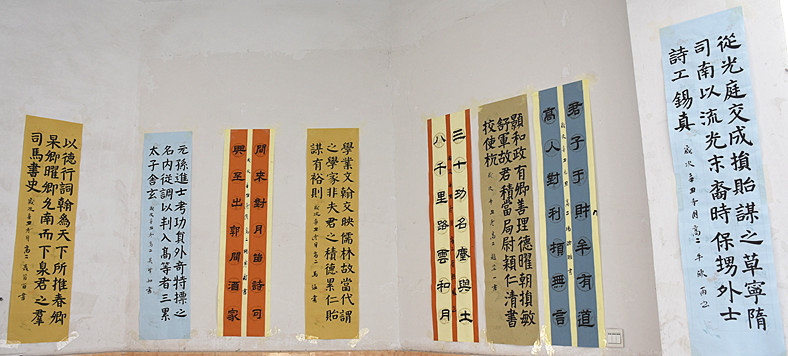 從光庭交成損貽謀之草寧隋
司南以流光末裔時保甥外士
詩工錫真 歲次辛丑十月高二
君子于財牟有道
高人對利損無言
顯和政有卿善理德曜朝損敏
舒軍故君積當局尉頛仁清書
校使杭
三十功名塵與土
八千里路雲和月
學業文翰交映儒林故當代謂
之學家非夫君之積德累仁貽
謀有裕則
來對月苗詩可
興至出郭問酒家
元孫進士考功員外奇特標之
名內從調以判入高等者三累
太子舍玄
以德行詞翰為天下所推春卿
杲卿曜卿允南而下泉君之羣
司馬書史